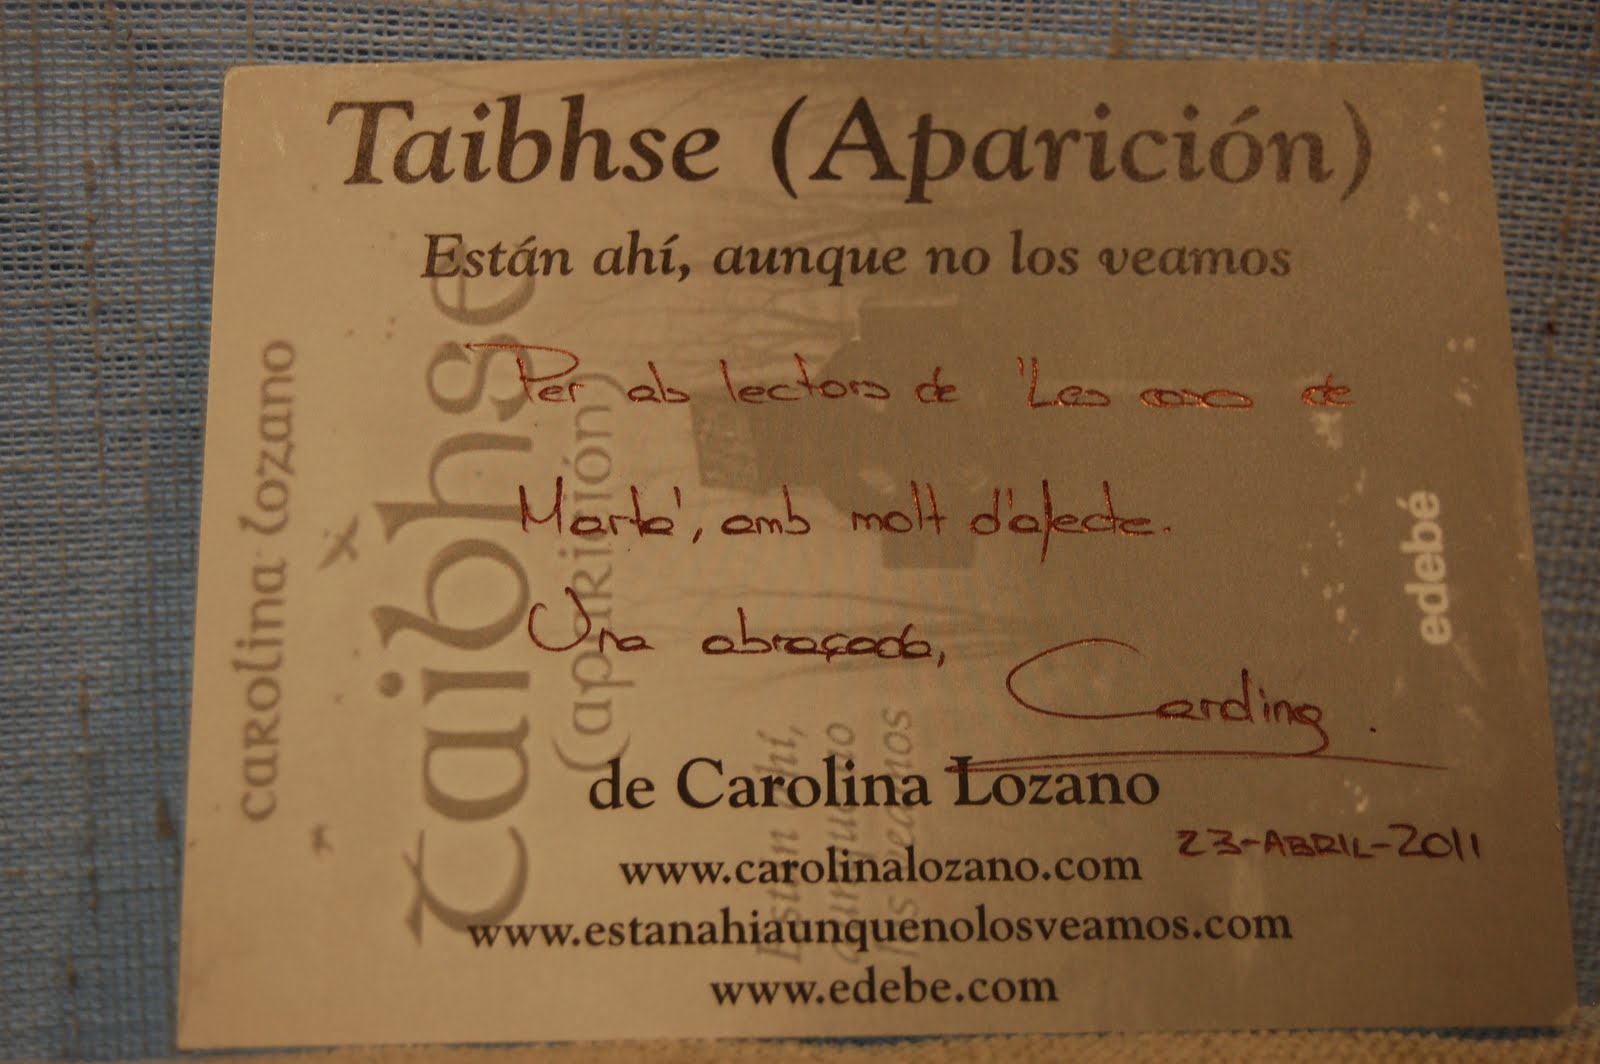 Taibhse (Aparición)
Están ahí, aunque no los veamos
Per als lectors de 'Les coses de
Marta', amb molt d'afecte.
Una abraçada,
Carolina.
de Carolina Lozano
23-ABRIL-2011
www.carolinalozano.com
www.estanahiaunquenolosveamos.com
www.edebe.com
carolina lozano
taibhse
(aparición)
Están ahí,
aunque no
los veamos
edebé